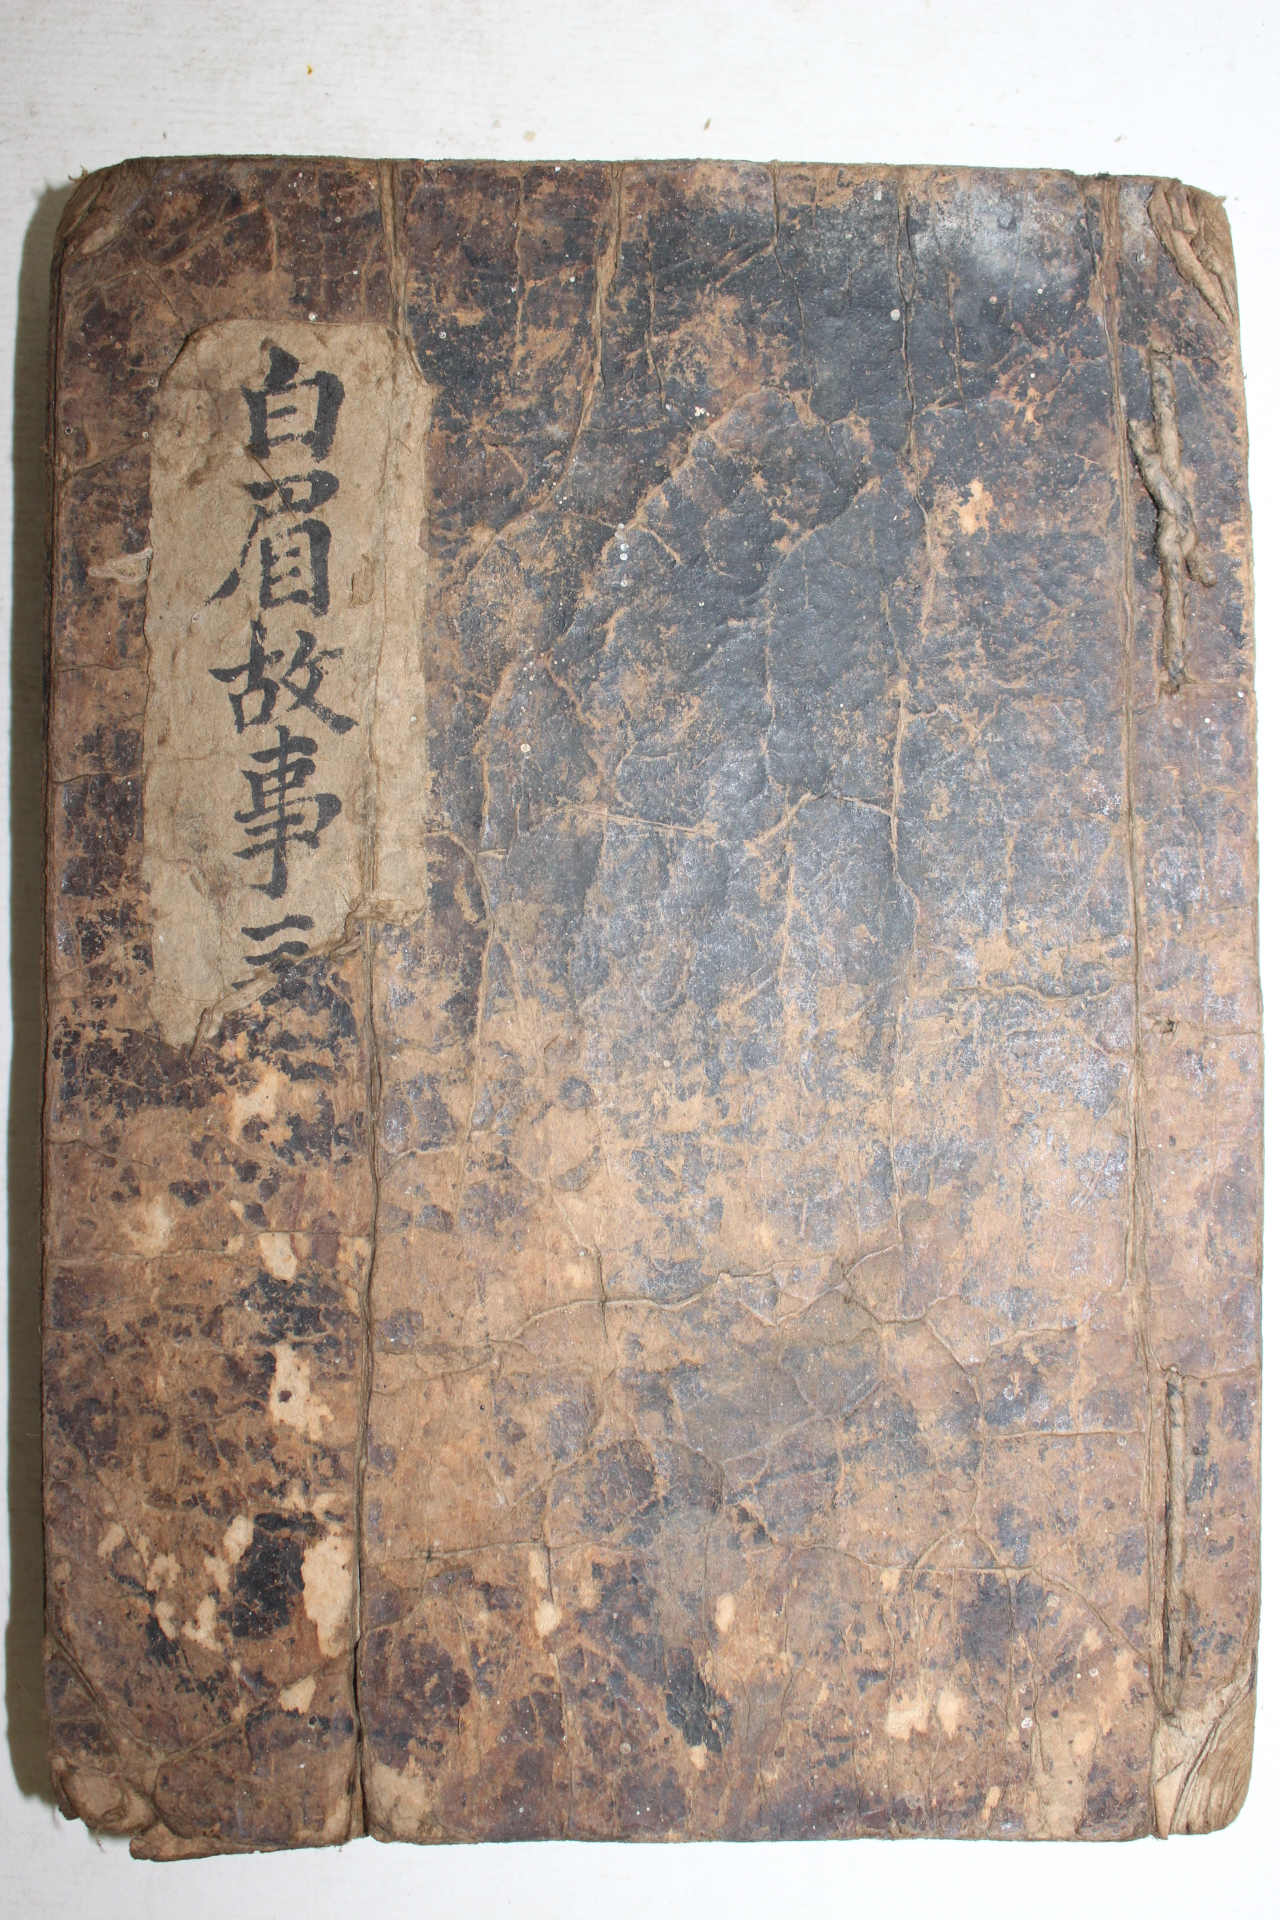 白眉故事三